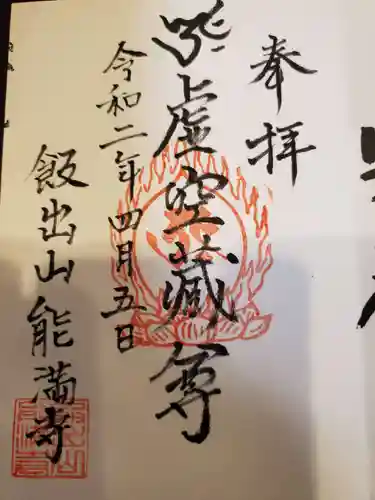 奉拝
虚空蔵尊
令和二年四月五日
飯出山能満寺